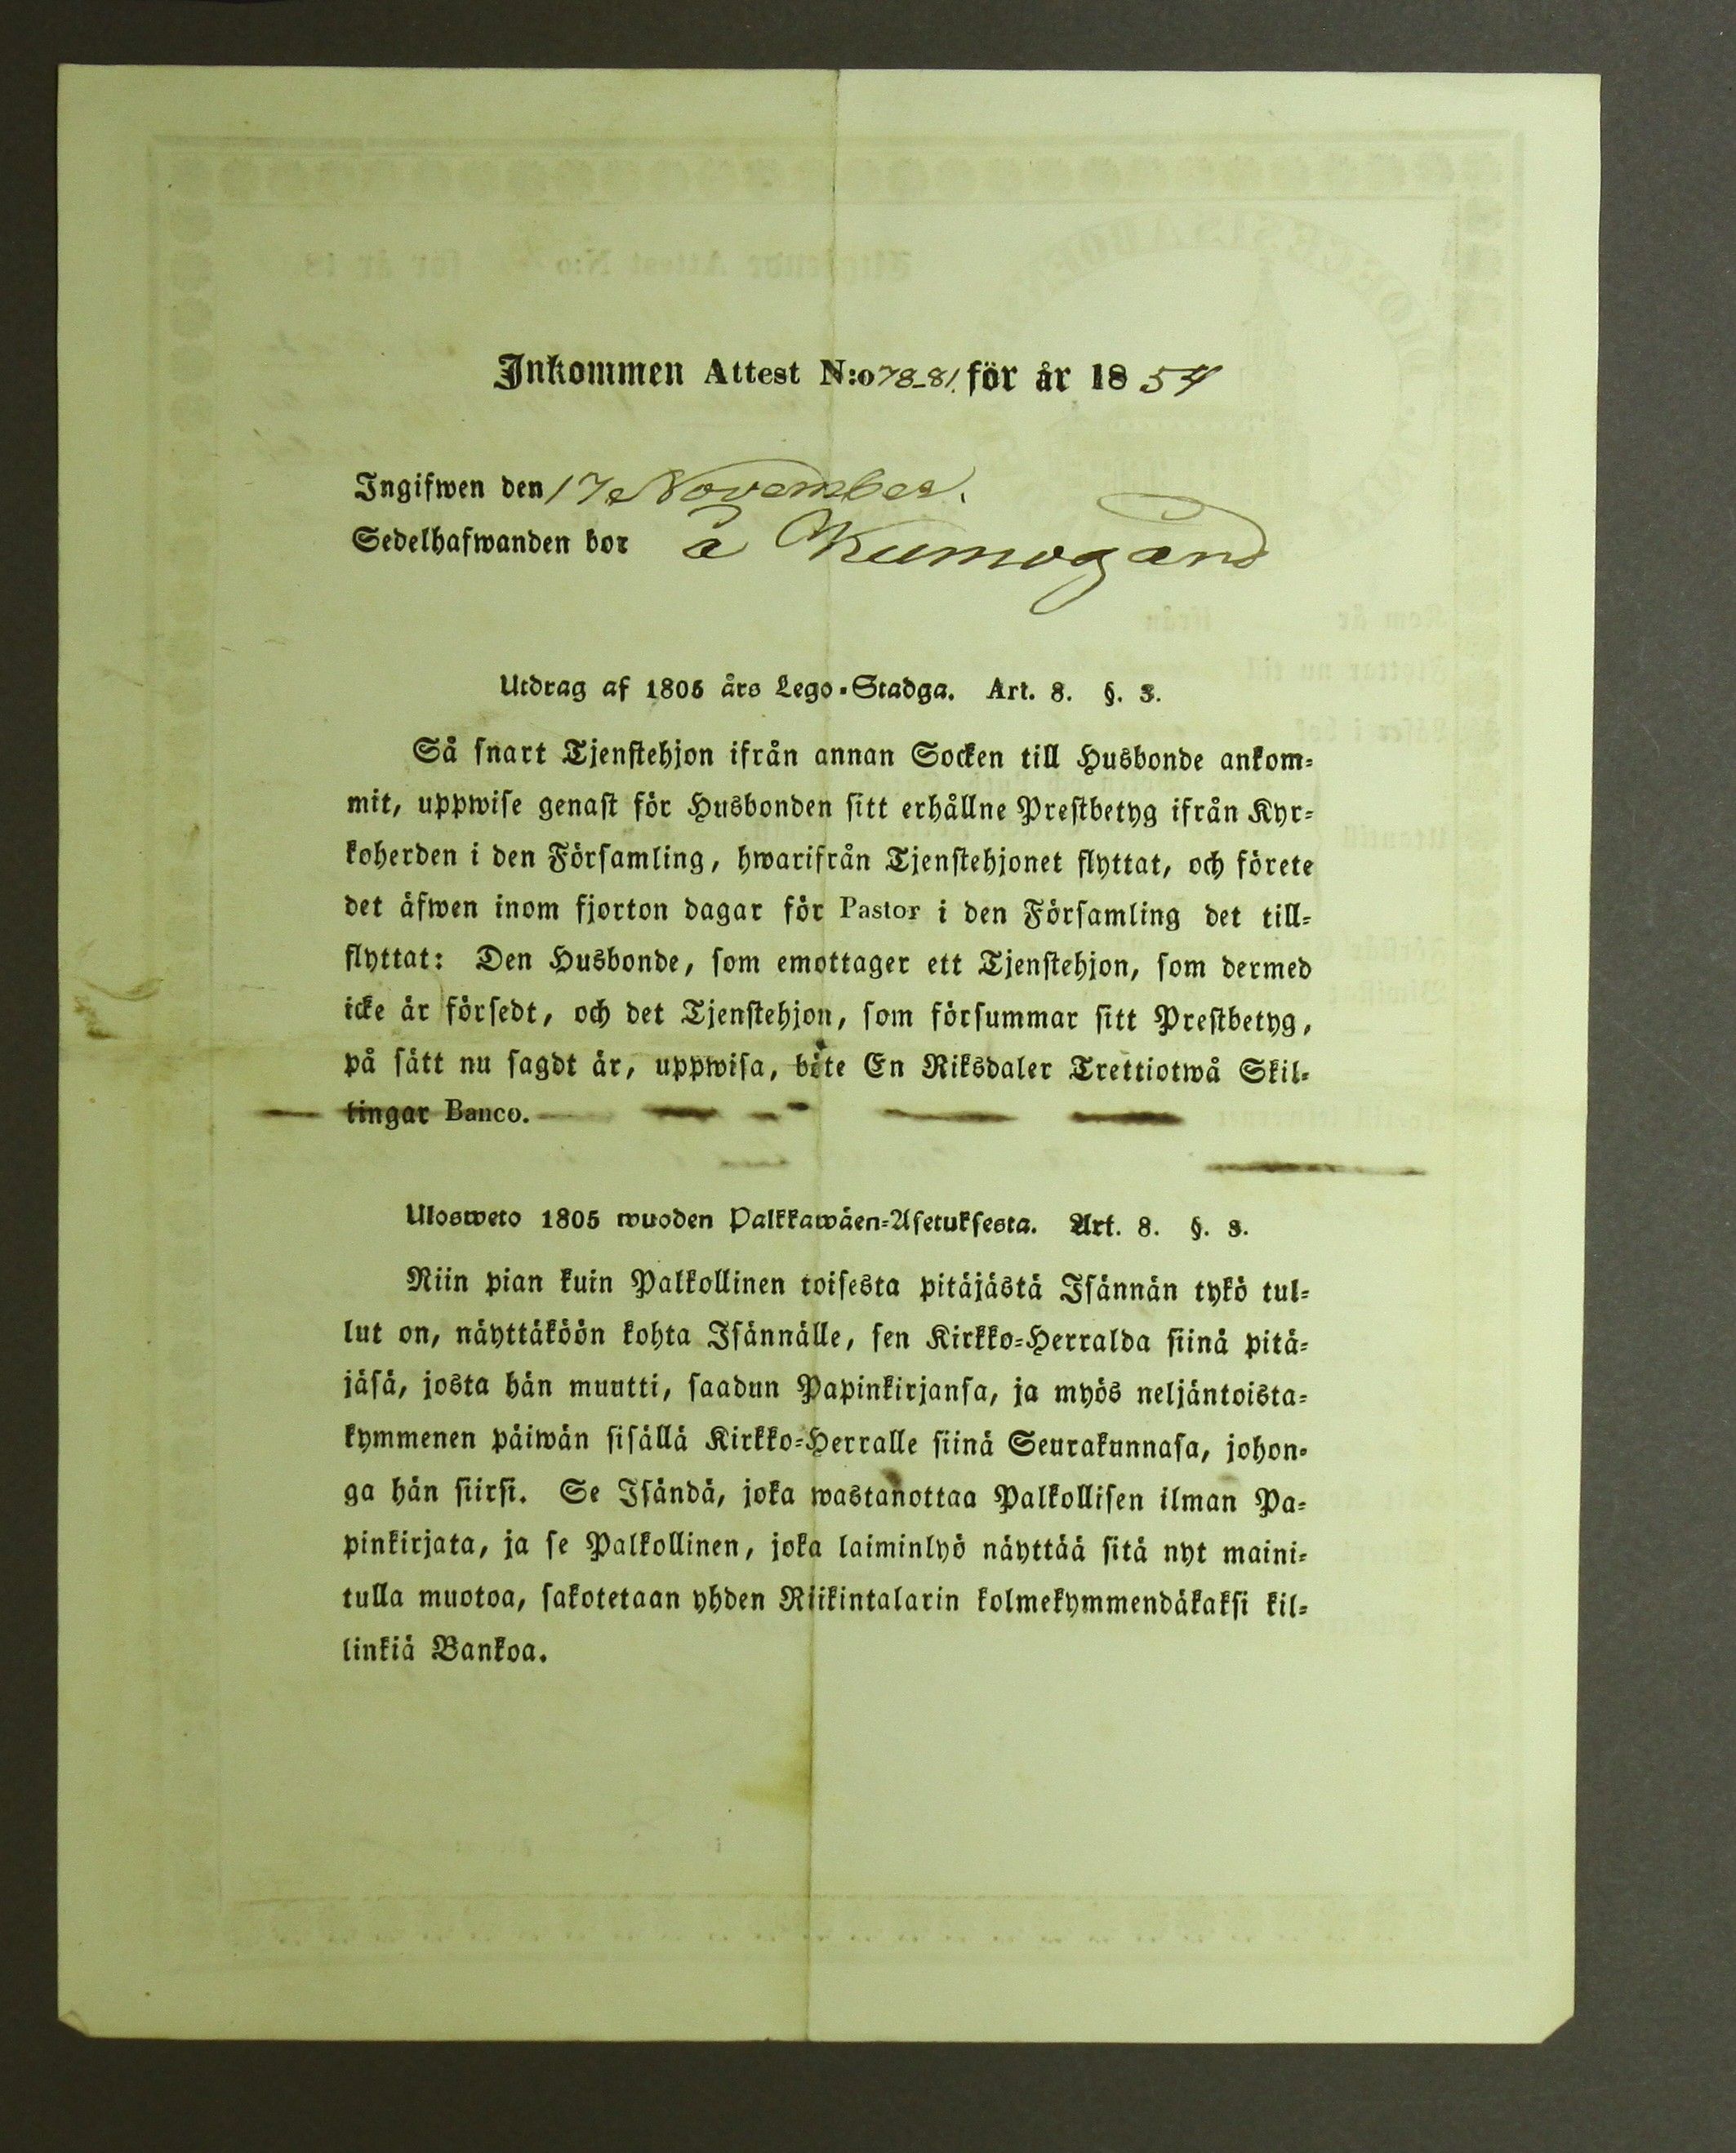 Inkommen Attest N:o 78-81. för år 1854
Ingifwen den 17 November.
Sedelhafwanden bor å Kumogård
Utdrag af 1805 års Lego-Stadga. Art. 8. §. 3.
Så snart Tjenstehjon ifrån annan Socken till Husbonde ankom-
mit, uppwise genast för Husbonden sitt erhållne Prestbetyg ifrån Kyr-
koherden i den Församling, hwarifrån Tjenstehjonet flyttat, och förete
det äfwen inom fjorton dagar för Pastor i den Församling det till-
flyttat: Den Husbonde, som emottager ett Tjenstehjon, som dermed
icke är försedt, och det Tjenstehjon, som försummar sitt Prestbetyg,
på sätt nu sagdt är, uppwisa, böte En Riksdaler Trettiotwå Skil-
lingar Banco.
Ulosweto 1805 wuoden Palkkawäen-Asetuksesta. Art. 8. §. 3.
Niin pian kuin Palkollinen toisesta pitäjästä Isännän tykö tul-
lut on, näyttäköön kohta Isännälle, sen Kirkko-Herralda siinä pitä-
jäsä, josta hän muutti, saadun Papinkirjansa, ja myös neljäntoista-
kymmenen päiwän sisällä Kirkko-Herralle siinä Seurakunnasa, johon-
ga hän siirsi. Se Isändä, joka wastanottaa Palkollisen ilman Pa-
pinkirjata, ja se Palkollinen, joka laiminlyö näyttää sitä nyt maini-
tulla muotoa, sakotetaan yhden Riikintalarin kolmekymmendäkaksi kil-
linkiä Bankoa.